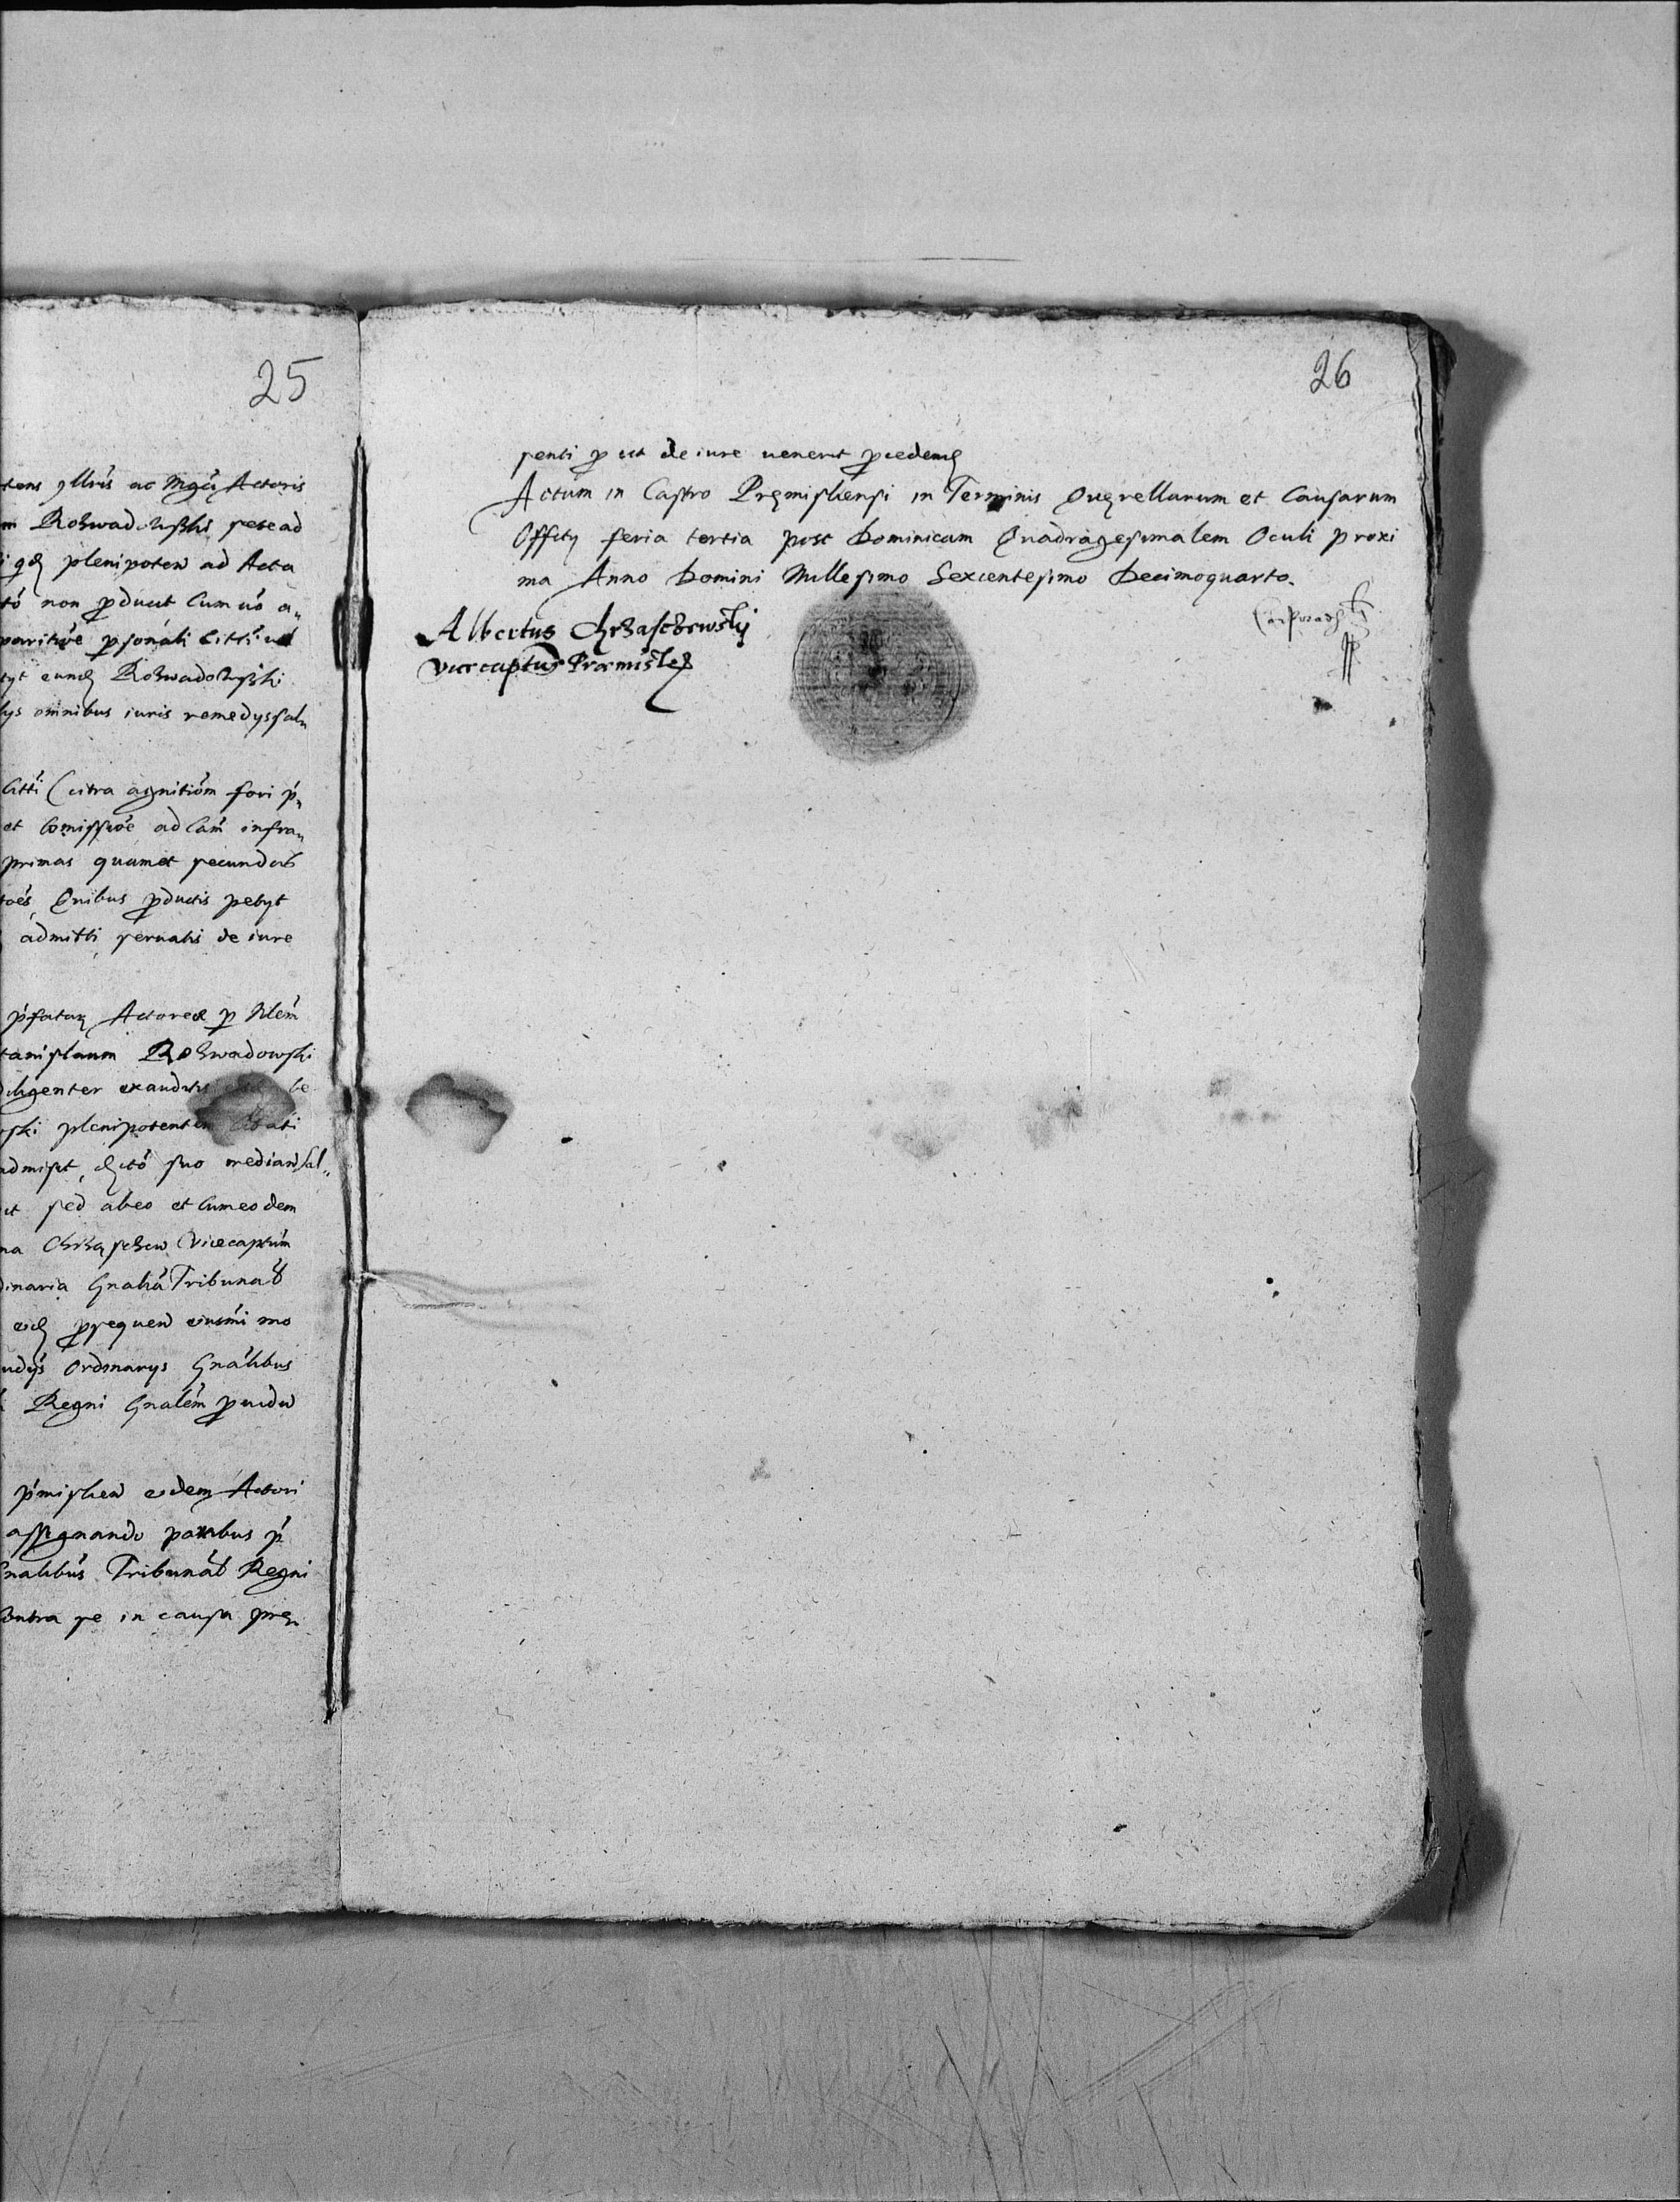 25
ac Mgci Actoris
Rozwadowski sese ad
plenipoten ad Acta
non pduxit Cum
psonali
eund Rozwadowski
omnibus iuris remedys salu
(citra agnitiom fori p
et Comissive ad Cam infra
primas quam et secundas
Quibus pductis petyt
admitti servatis de iure
pfatum Actorem p Nlem
tanislaum Rozwadowski
diligenter exauditis
ski plenipotentem Citati
admisit, suo median Sal
sed ab eo et Cum eodem
Vicecaptum
dinaria Gnalia Tribunal
psequen eiusmi mo
Ordinarys Gnalibus
Regni Gnalem
pmislien eidem Actori
assignando partibus p
Gnalibus Tribunal Regni
Contra se in causa pre
26
senti p ut de iure venerit pcedend
Actum in Castro Premisliensi in Terminis Querellarum et Causarum
Officy feria tertia post Dominicam Quadragesimalem Oculi proxi
ma Anno Domini Millesimo Sexcentesimo Decimoquarto.
Albertus Chrzasczewsky
Vicecaptus Præmislen